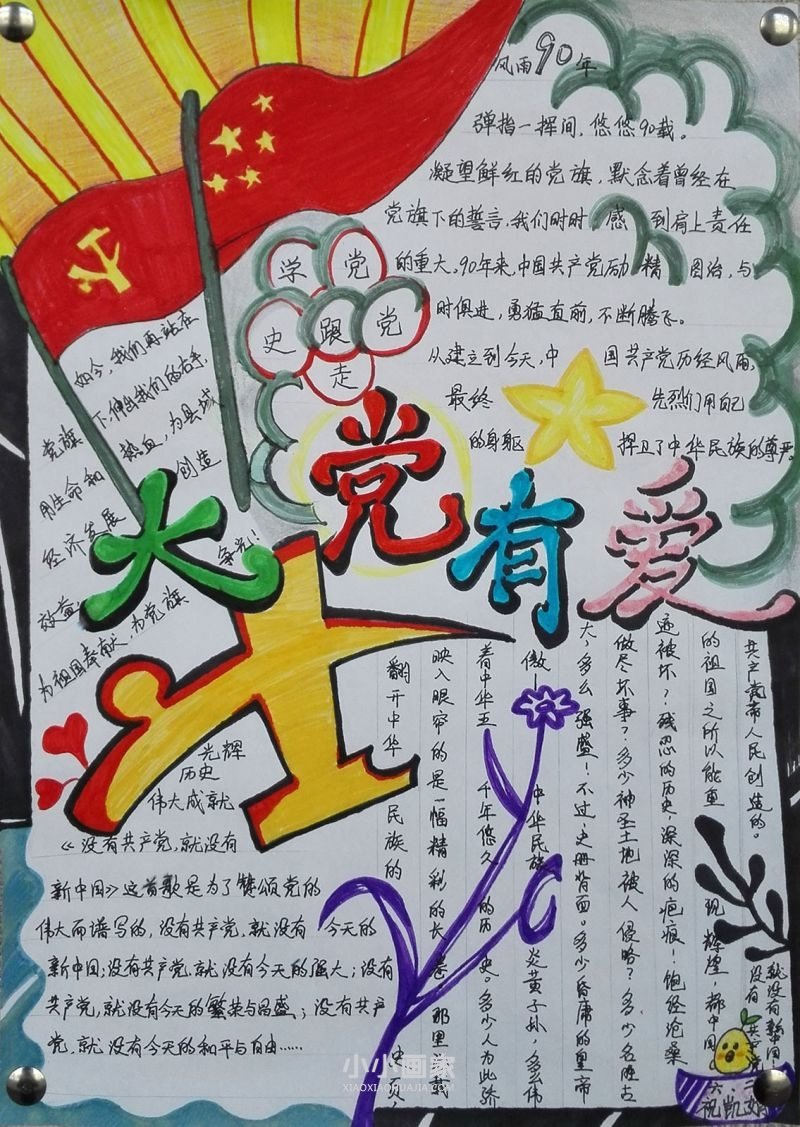 风雨90年
弹指一挥间，悠悠90载。
凝望鲜红的党旗，默念着曾经在
党旗下的誓言，我们时时感到肩上责任
的重大。90年来，中国共产党励精图治，与
时俱进，勇猛直前，不断腾飞。
从建立到今天，中国共产党历经风雨，
最终先烈们用自己
的身躯捍卫了中华民族的尊严。
学党
史跟党
走
如今，我们再站在
党旗下，伸出我们的右手，
用生命和热血，为县域
经济发展创造
效益，争光！
为祖国奉献，为党旗
大党有爱
光辉
历史
伟大成就
《没有共产党，就没有
新中国》这首歌是为了赞颂党的
伟大而谱写的，没有共产党，就没有今天的
新中国；没有共产党，就没有今天的强大；没有
共产党，就没有今天的繁荣与昌盛；没有共产
党，就没有今天的和平与自由……
翻开中华民族的史
映入眼帘的是一幅精彩的长卷，那里
着中华五千年悠久的历史。多少人为此骄
傲——中华民族炎黄子孙，多么伟
大，多么强盛！不过，史册背面。多少昏庸的皇帝
做尽坏事？多少神圣土地被人侵略？多少名胜古
迹被坏？残忍的历史，深深的疤痕！饱经沧桑
的祖国之所以能重现辉煌，都中国
共产党带人民创造的。
没有共产党
就没有新中国！
六、二
祝凯
小小画家
XIAOXIAOHUAJIA.COM